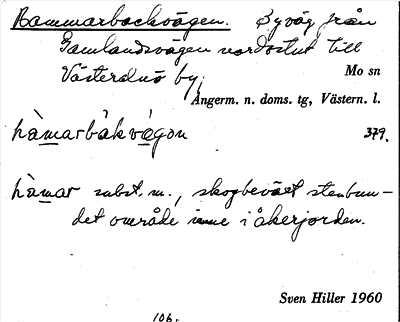 Hammarbackvägen. Byväg från
Gamlandsvägen nordostut till
Västerdnö by,
Mo sn
Ångerm. n. doms. tg, Västern. l.
hàmarbàkvégon 379.
hàmar subst. m., skogbeväxt stenbun-
det område inne i åkerjorden.
Sven Hiller 1960
106.